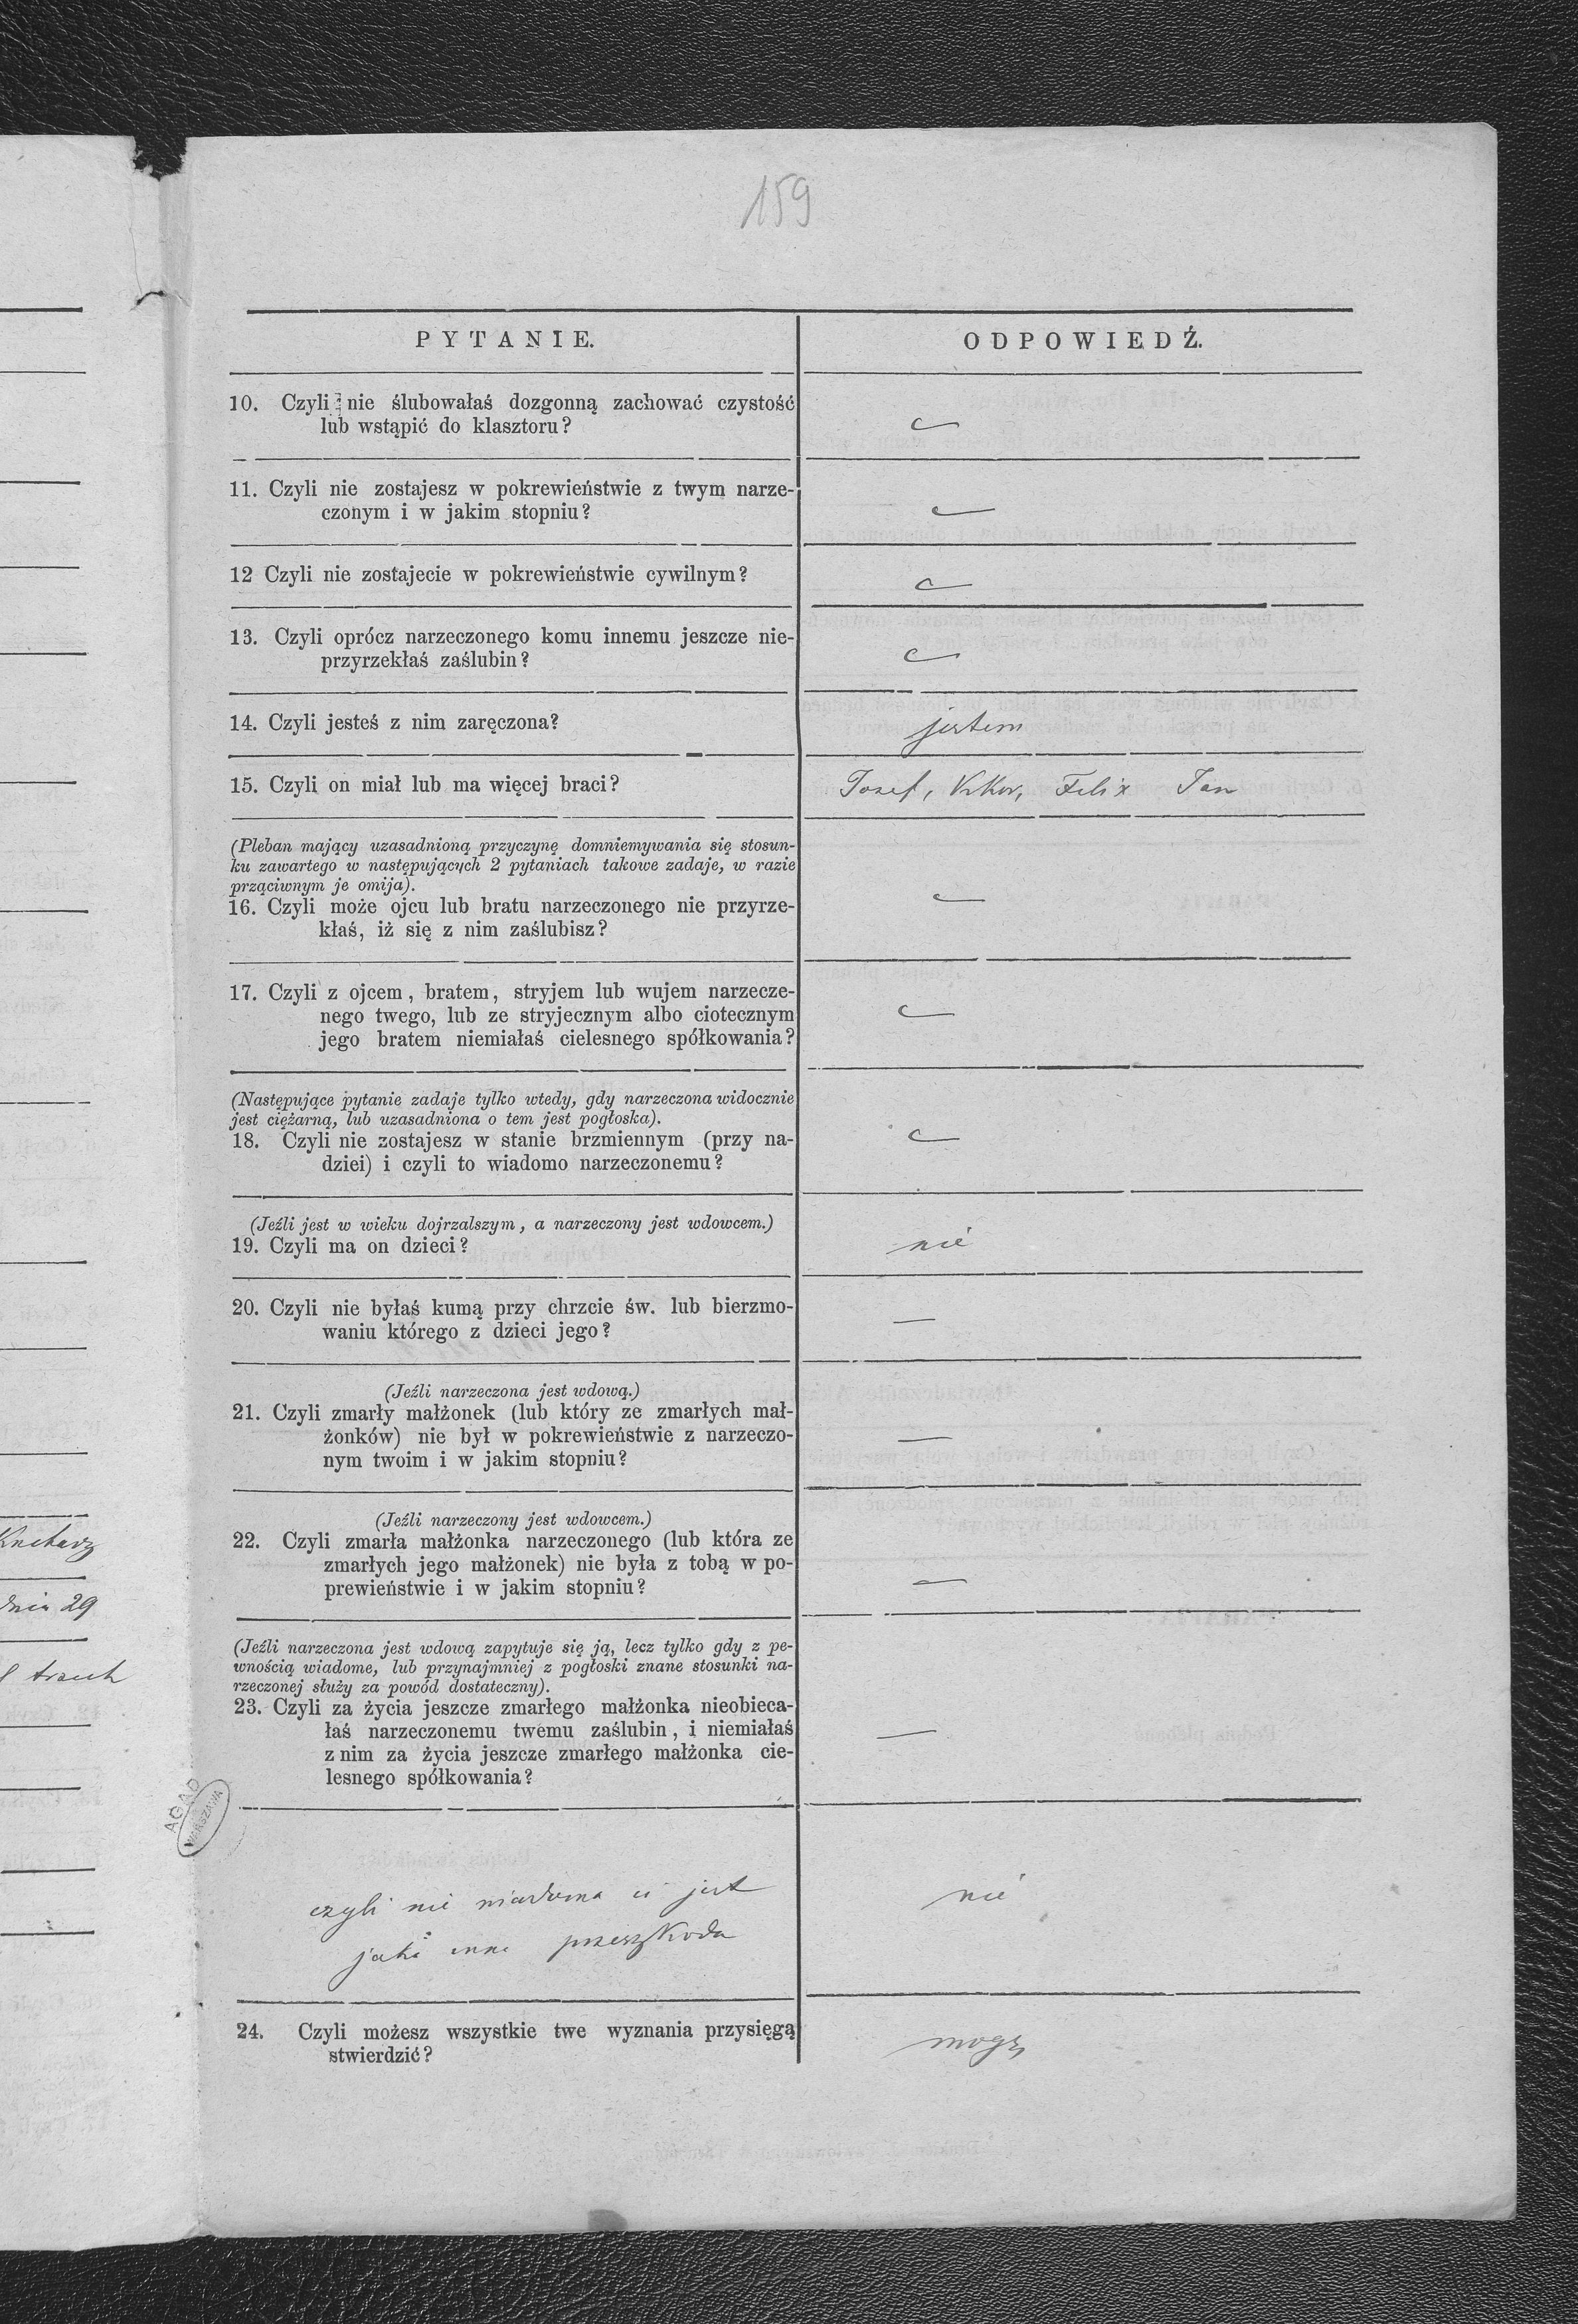 159
PYTANIE.
ODPOWIEDŹ.
10. Czyli nie ślubowałaś dozgonną zachować czystość
lub wstąpić do klasztoru?
11. Czyli nie zostajesz w pokrewieństwie z twym narze-
czonym i w jakim stopniu?
12 Czyli nie zostajecie w pokrewieństwie cywilnym?
13. Czyli oprócz narzeczonego komu innemu jeszcze nie-
przyrzekłaś zaślubin?
14. Czyli jesteś z nim zaręczona?
jestem
15. Czyli on miał lub ma więcej braci?
Josef, Felix Jan
(Pleban mający uzasadnioną przyczynę domniemywania się stosun-
ku zawartego w następujących 2 pytaniach takowe zadaje, w razie
prząciwnym je omija).
16. Czyli może ojcu lub bratu narzeczonego nie przyrze-
kłaś, iż się z nim zaślubisz?
—
17. Czyli z ojcem, bratem, stryjem lub wujem narzecze-
nego twego, lub ze stryjecznym albo ciotecznym
jego bratem niemiałaś cielesnego spółkowania?
(Następujące pytanię zadaje tylko wtedy, gdy narzeczona widocznie
jest ciężarną, lub uzasadniona o tem jest pogłoska).
18. Czyli nie zostajesz w stanie brzmiennym (przy na-
dziei) i czyli to wiadomo narzeczonemu?
(Jeźli jest w wieku dojrzalszym, a narzeczony jest wdowcem.)
19. Czyli ma on dzieci?
nie
20. Czyli nie byłaś kumą przy chrzcie św. lub bierzmo-
waniu którego z dzieci jego?
—
(Jeźli narzeczona jest wdową.)
21. Czyli zmarły małżonek (lub który ze zmarłych mał-
żonków) nie był w pokrewieństwie z narzeczo-
nym twoim i w jakim stopniu?
—
(Jeźli narzeczony jest wdowcem.)
22. Czyli zmarła małżonka narzeczonego (lub która ze
zmarłych jego małżonek) nie była z tobą w po-
prewieństwie i w jakim stopniu?
—
(Jeźli narzeczona jest wdową zapytuje się ją, lecz tylko gdy z pe-
wnością wiadome, lub przynajmniej z pogłoski znane stosunki na-
rzeczonej służy za powód dostateczny).
23. Czyli za życia jeszcze zmarłego małżonka nieobieca-
łaś narzeczonemu twemu zaślubin, i niemiałaś
z nim za życia jeszcze zmarłego małżonka cie-
lesnego spółkowania?
—
czyli nie wiadoma ci jest
jaka inna przeszkoda
nie
24. Czyli możesz wszystkie twe wyznania przysięgą
stwierdzić?
mogę
dnia 29
AGAD
WARSZAWA